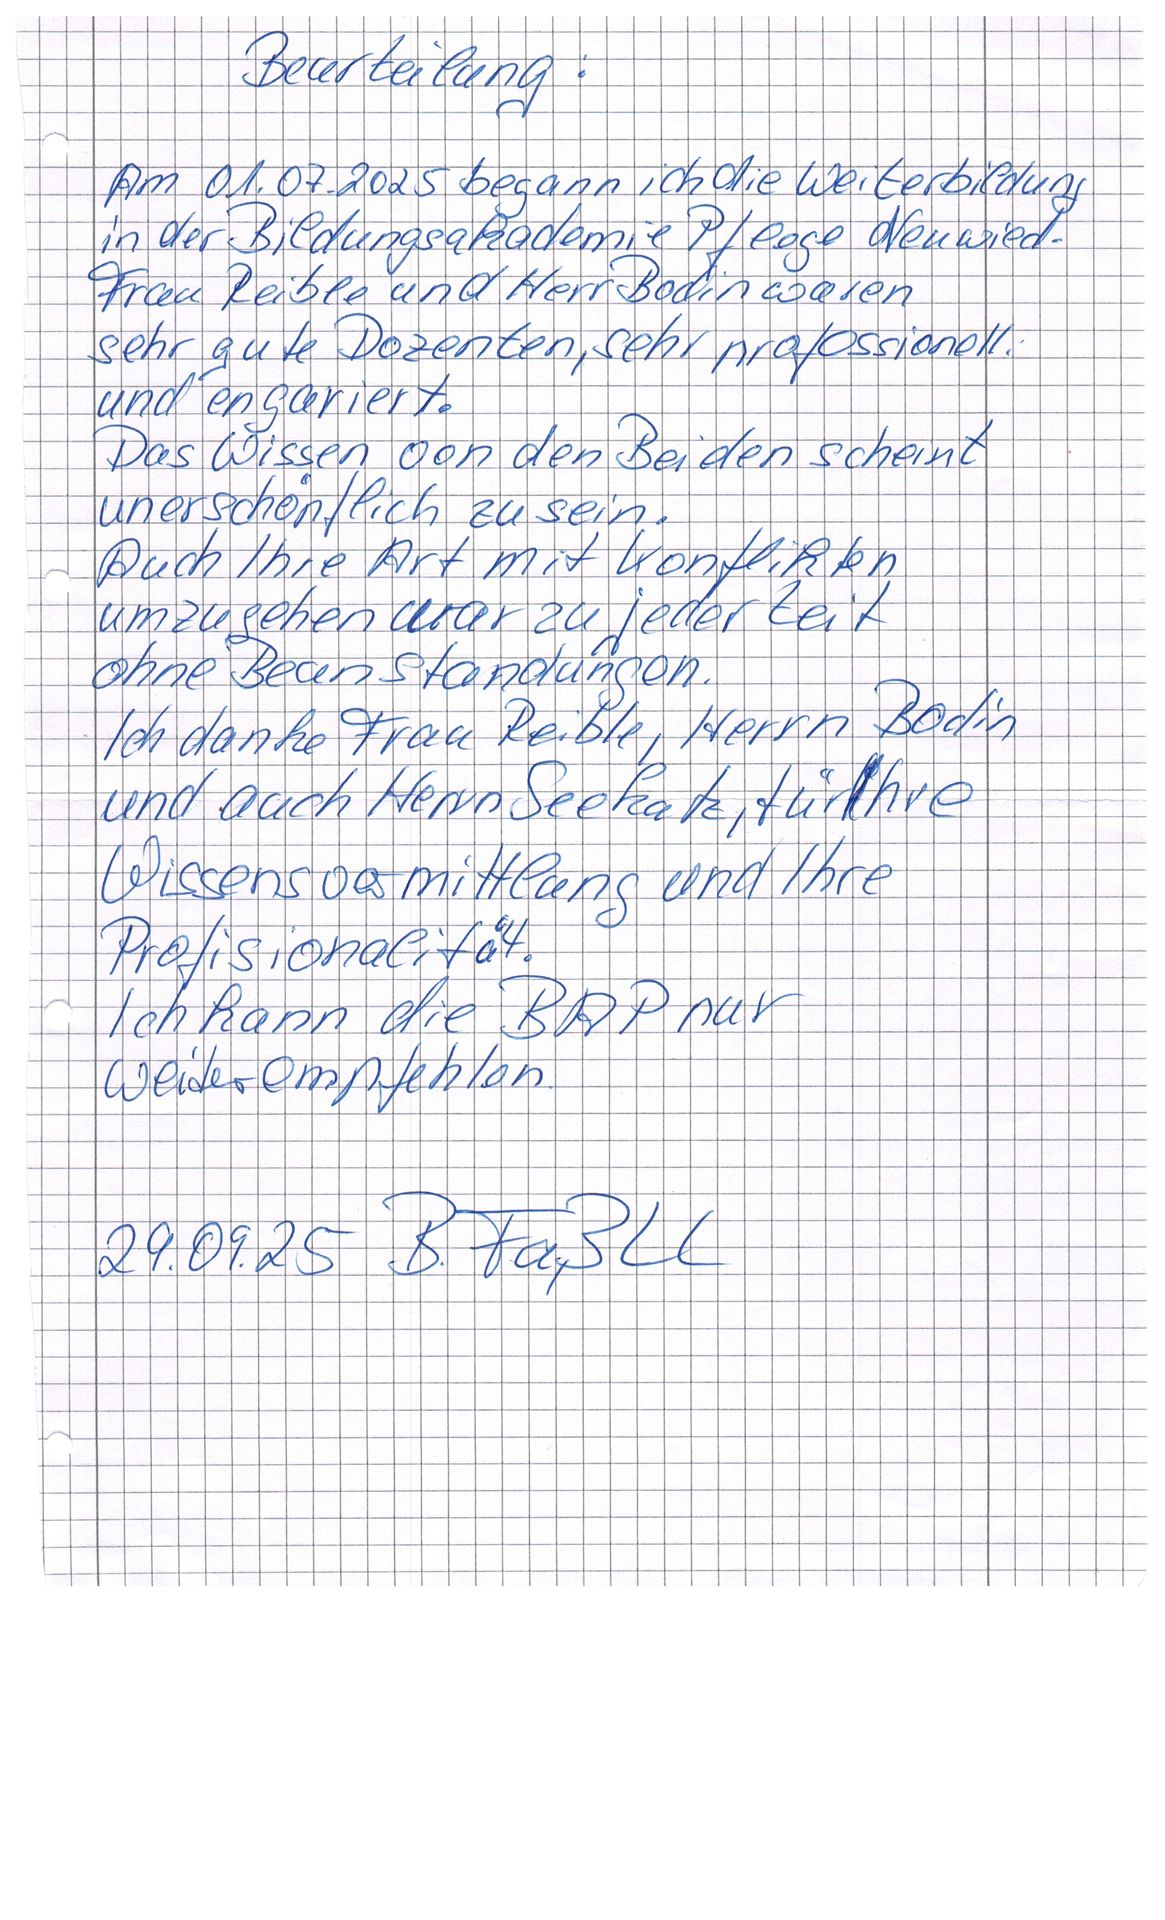 Beurteilung:
Am 01.07.2025 begann ich die Weiterbildung
in der Bildungsakademie Pflege Neuwied.
Frau Reible und Herr Bodin waren
sehr gute Dozenten, sehr professionell.
und engariert.
Das Wissen von den Beiden scheint
unerschöpflich zu sein.
Auch Ihre Art mit Konflikten
umzugehen war zu jeder Zeit
ohne Beanstandungen.
Ich danke Frau Reible, Herrn Bodin
und auch Herrn Seekatz, für Ihre
Wissensvermittlung und Ihre
Profisionalität.
Ich kann die BAP nur
weiterempfehlen.
29.09.25 B.